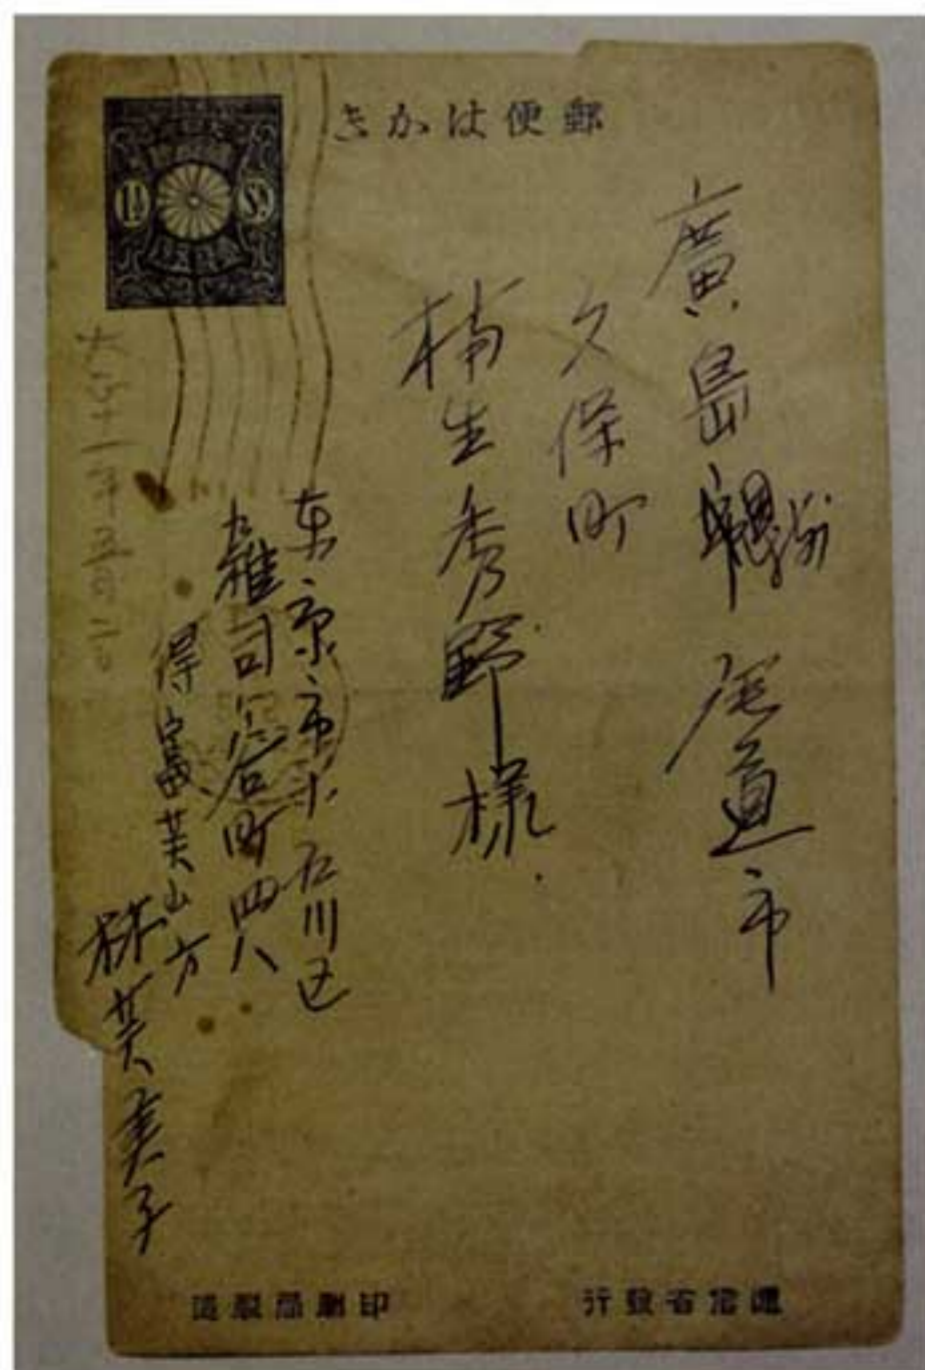 郵便はかき
廣島縣 尾道市
久保町
楠生秀野様
東京市小石川区
雑司ヶ谷町四八
得富芙山方
林芙美子
大正十一年五月二日
逓信省發行
印刷局製造